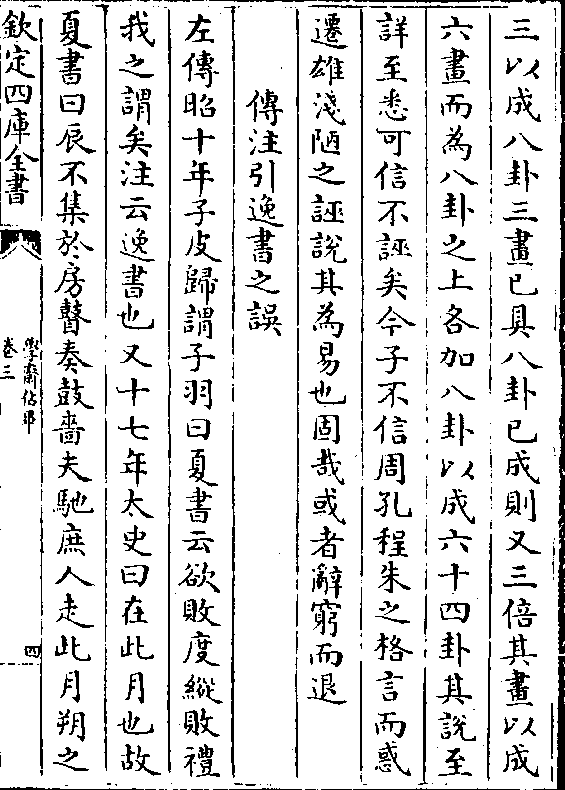 三以成八卦三畫已具八卦已成則又三倍其畫以成
六畫而為八卦之上各加八卦以成六十四卦其說至
詳至悉可信不誣矣今子不信周孔程朱之格言而惑
遷雄淺陋之誣說其為易也固哉或者辭窮而退
傳注引逸書之誤
左傳昭十年子皮歸謂子羽曰夏書云欲敗度縱敗禮
我之謂矣注云逸書也又十七年太史曰在此月也故
夏書曰辰不集於房瞽奏鼓嗇夫馳庶人走此月朔之
欽定四庫全書
學齋佔畢
卷三
四